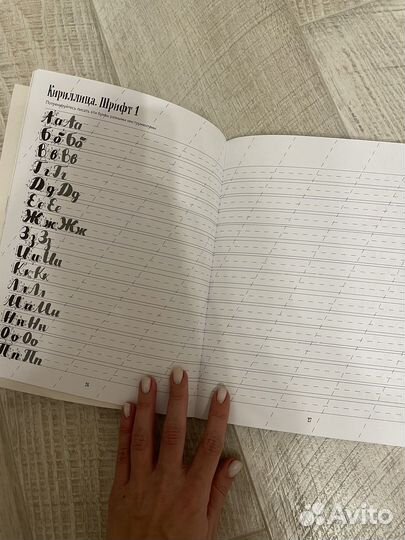 Кириллица. Шрифт 1
Потренируйтесь писать эти буквы разными инструментами
Аа Аа
Бб Бб
Вв Вв
Гг Гг
Дд Дд
Ее Ее
Жж Жж
Зз Зз
Ии Ии
Кк Кк
Лл Лл
Мм Мм
Нн Нн
Оо Оо
Пп Пп
Avito